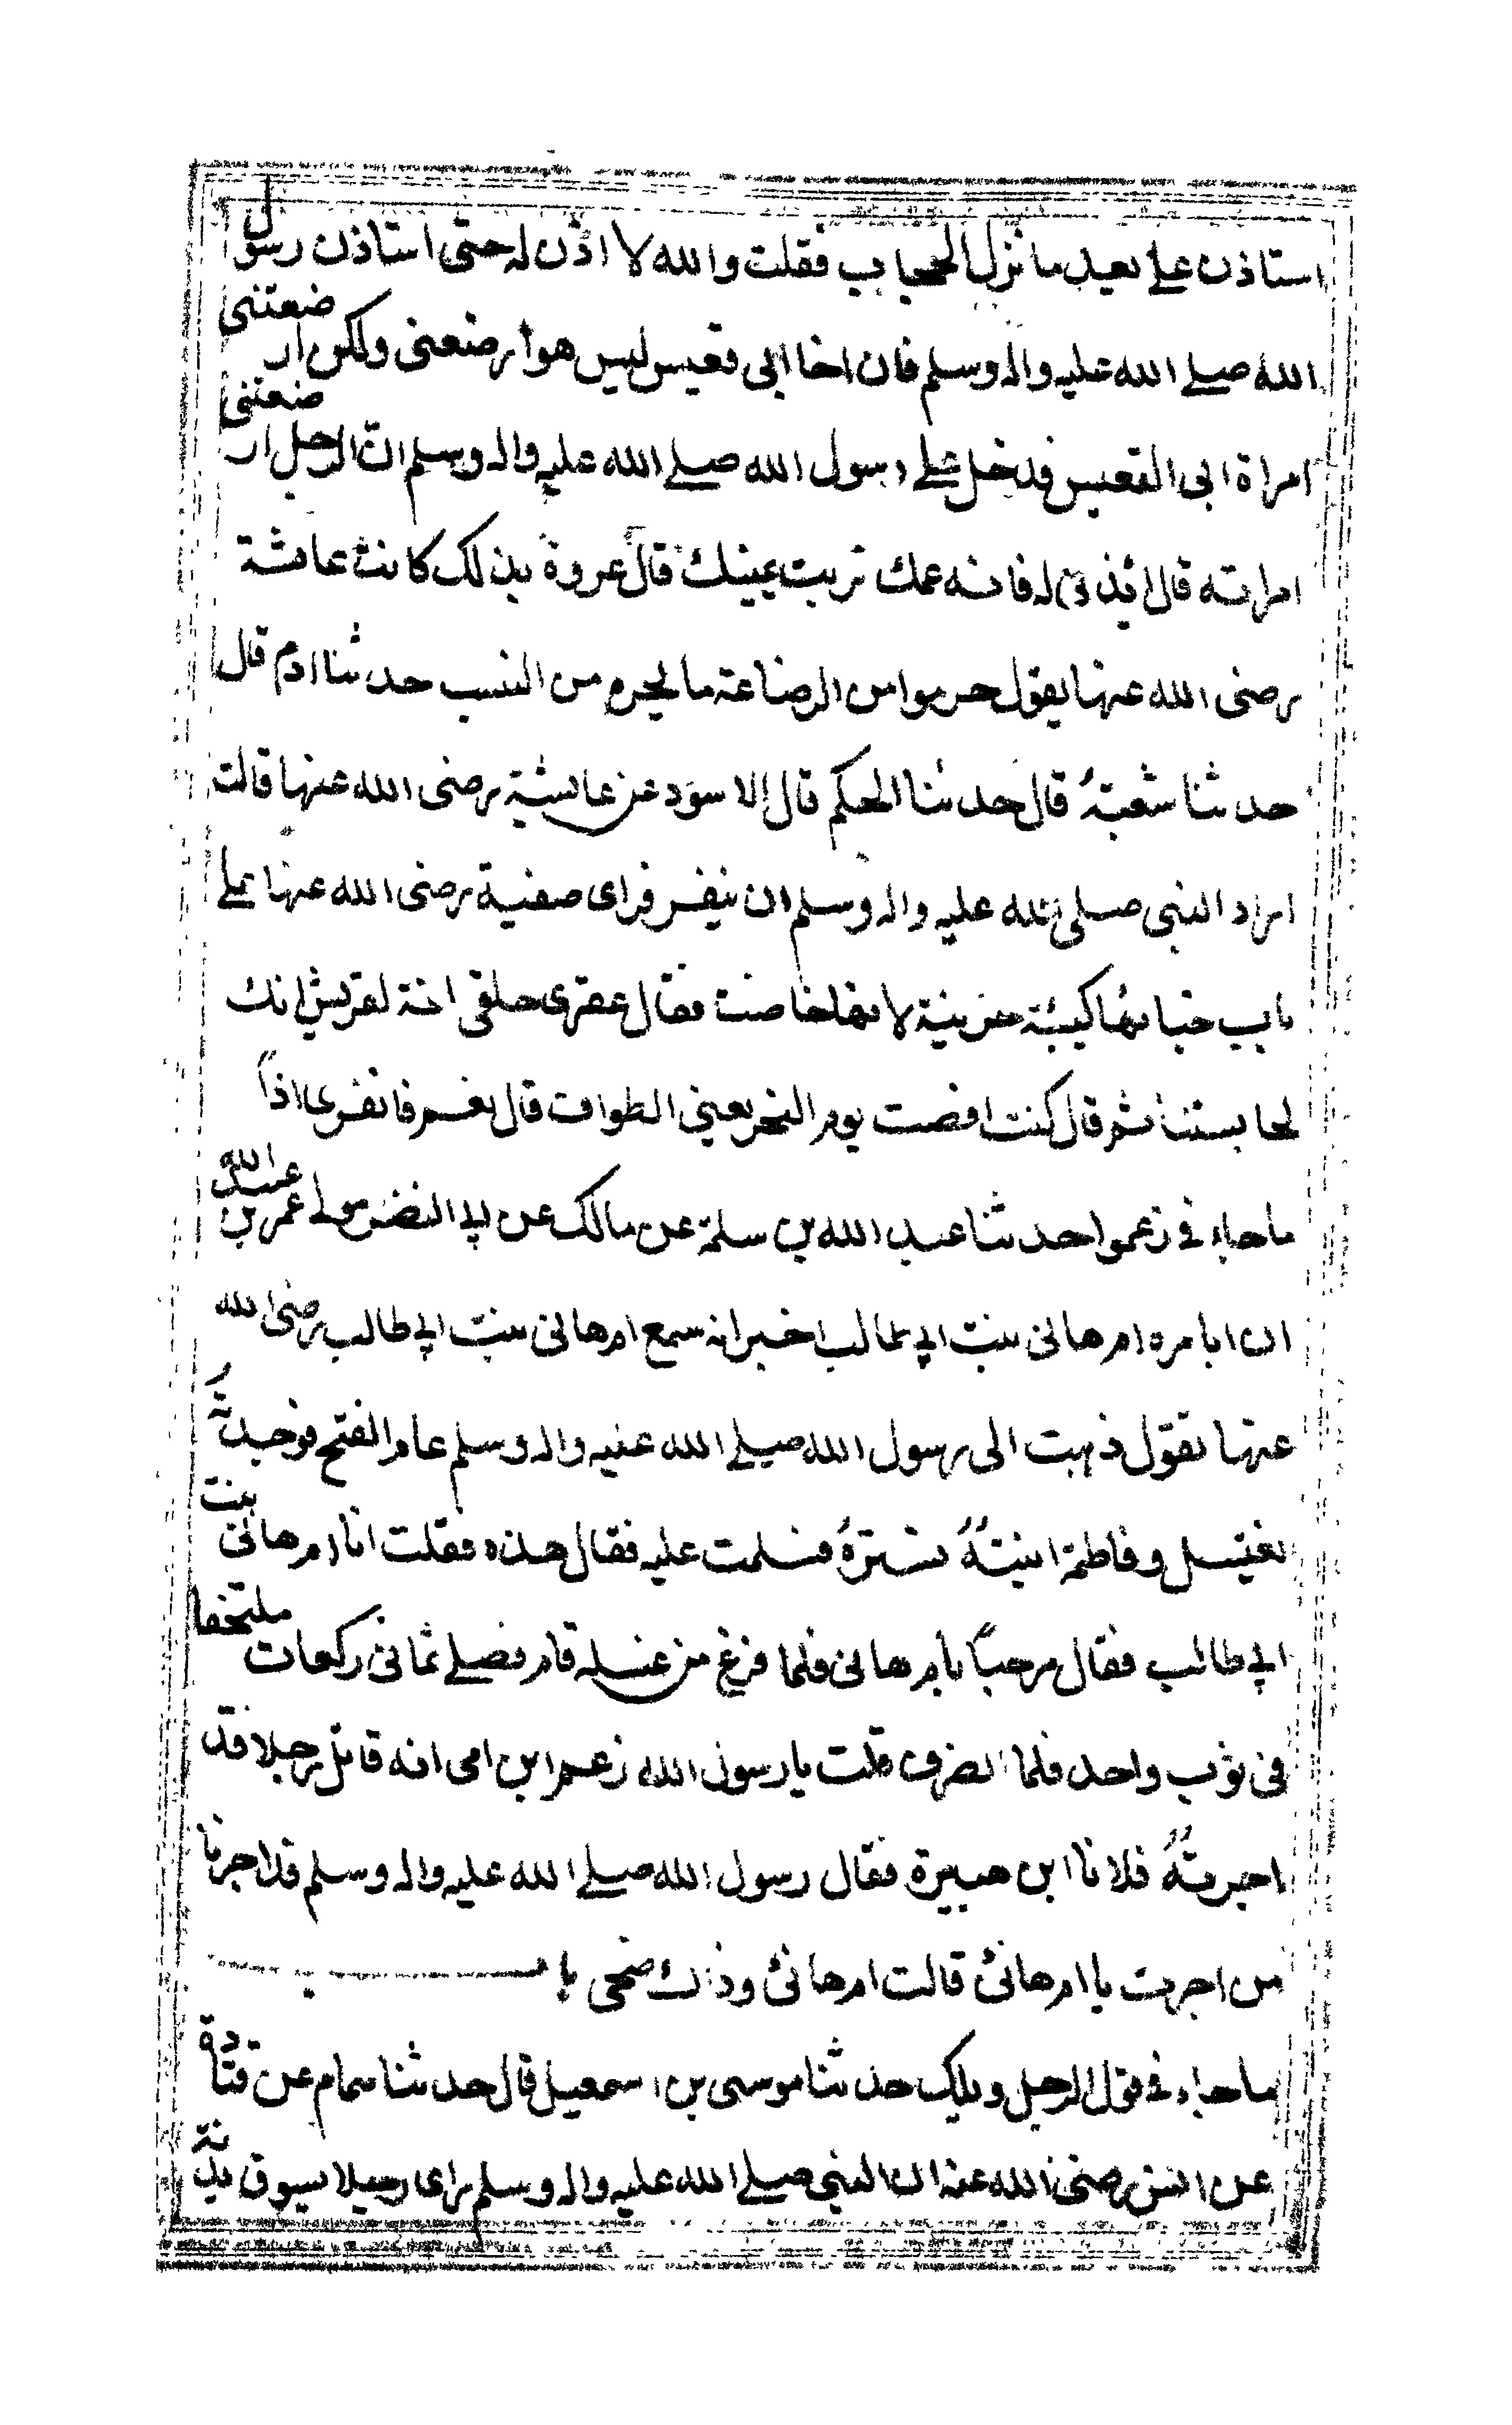 استاذن علي بعد ما نزل الحجاب فقلت والله لا اذن له حتى استاذن رسول
الله صلے الله عليه واله وسلم فان اخا ابى قعيس ليس هو ارضعنى ولكن ارضعتنى
امراة ابى القعيس فدخل علے رسول الله صلے الله عليه واله وسلم ان الرجل ارضعتنى
امراته قال ائذنى له فانه عمك تربت يمينك قال عروة بذلك كانت عائشة
رضى الله عنها يقول حرموا من الرضاعة ما يحرم من النسب حدثنا ادم قال
حدثنا شعبتهُ قال حدثنا الحكم قال الاسود عن عائشة رضى الله عنها قالت
اراد النبى صلى الله عليه واله وسلم ان ينفر فراى صفية رضى الله عنها على
باب خبائها كيبئة حزينة لانها حاضت فقال عقرى حلقى اخة لقريش انك
لحابستنا ثم قال كنت افضت يوم النحر يعنى الطواف قال نعم فانفرى اذاً
ماجاء فى زعموا حدثنا عبد الله بن سلمة عن مالك عن ابى النضر مولے عمر بن عبيد الله
ان ابا مره ام هانى بنت ابى طالب اخبرانه سمع ام هانى بنت ابى طالب رضى الله
عنها تقول ذهبت الى رسول الله صلے الله عليه واله وسلم عام الفتح فوجدته
يغتسل وفاطمة ابنتهُ تسترهُ فسلمت عليه فقال هذه فقلت انا ام هانى بنت
ابى طالب فقال مرحباً بام هانى فلما فرغ من غسله قام فصلے ثمانى ركعات ملتحفا
فى ثوب واحد فلما انصرف قلت يا رسول الله زعم ابن امى انه قاتل رجلا قد
اجرتهُ فلانا ابن هبيرة فقال رسول الله صلے الله عليه واله وسلم قد اجرنا
من اجرت يا ام هانئ قالت ام هانئ وذلك ضحى با ب
ماجاء فى قول الرجل ويلك حدثنا موسى بن اسمعيل قال حدثنا همام عن قتادة
عن انس رضى الله عنه ان النبى صلے الله عليه واله وسلم راى رجلا يسوق بدنة